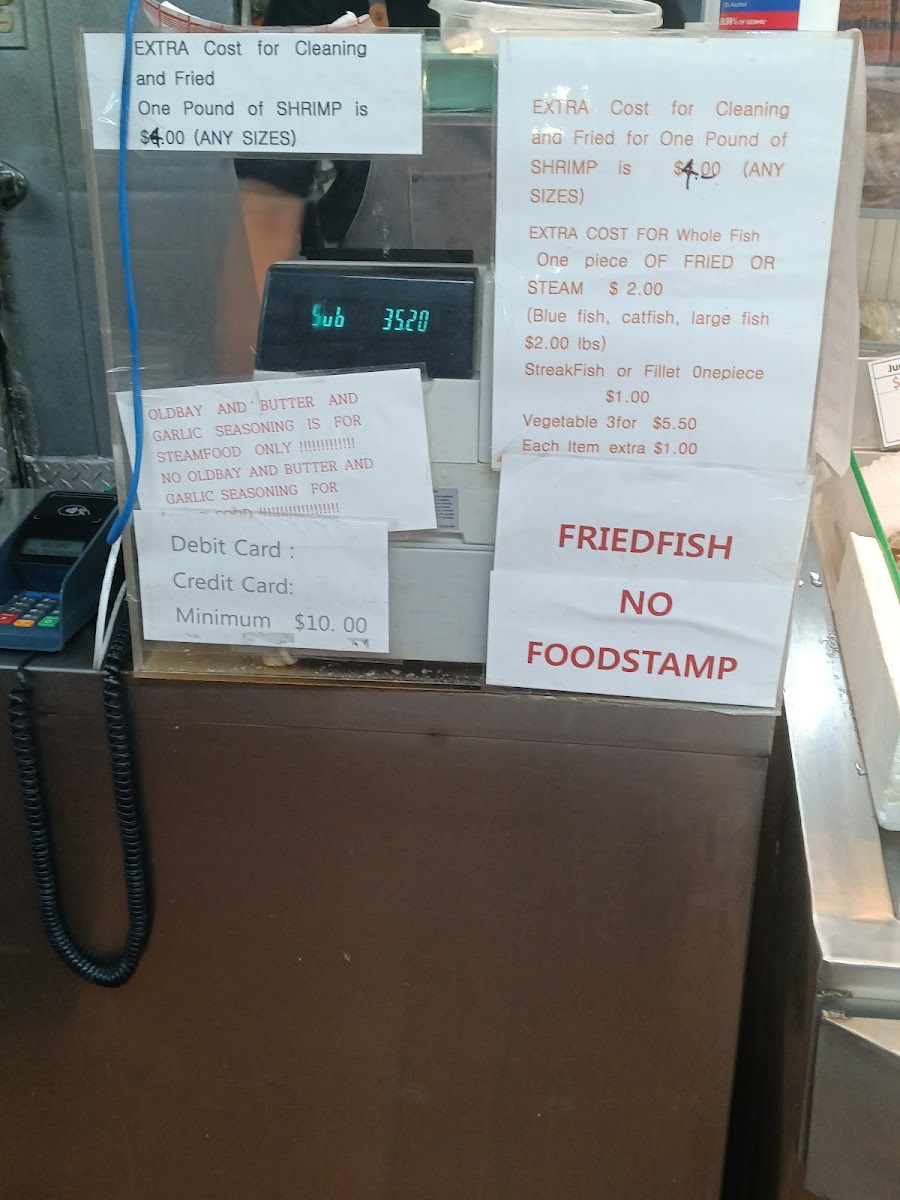 EXTRA Cost for Cleaning
and Fried
One Pound of SHRIMP is
$4.00 (ANY SIZES)
EXTRA Cost for Cleaning
and Fried for One Pound of
SHRIMP is $4.00 (ANY
SIZES)
EXTRA COST FOR Whole Fish
One piece OF FRIED OR
STEAM $ 2.00
(Blue fish, catfish, large fish
$2.00 lbs)
StreakFish or Fillet Onepiece
$1.00
Vegetable 3for $5.50
Each Item extra $1.00
Sub 35.20
OLDBAY AND BUTTER AND
GARLIC SEASONING IS FOR
STEAMFOOD ONLY !!!!!!!!!!!!!
NO OLDBAY AND BUTTER AND
GARLIC SEASONING FOR
Debit Card :
Credit Card:
Minimum $10. 00
FRIEDFISH
NO
FOODSTAMP